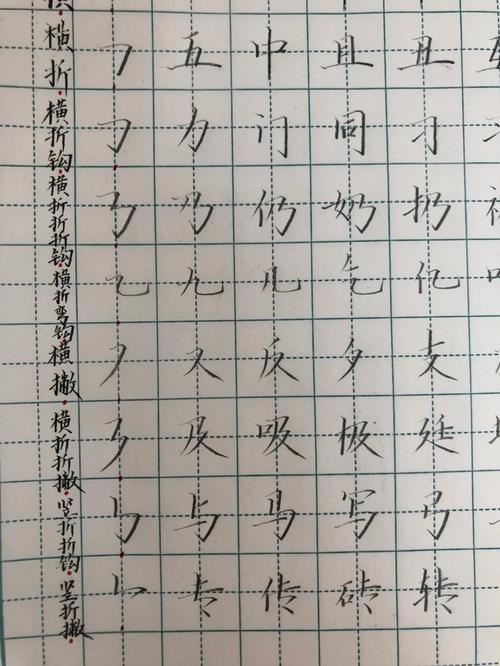 横折 ㇕ 五 中 且 丑
横折钩 ㇆ 力 门 同 刁
横折折折钩 ㇡ 乃 仍 奶 扔
横折弯钩 ㇈ 九 几 乞 亿
横撇 ㇇ 又 反 夕 支
横折折撇 ㇋ 及 吸 极 延
竖折折钩 ㇉ 与 马 写 弓
竖折撇 ㇜ 专 传 砖 转